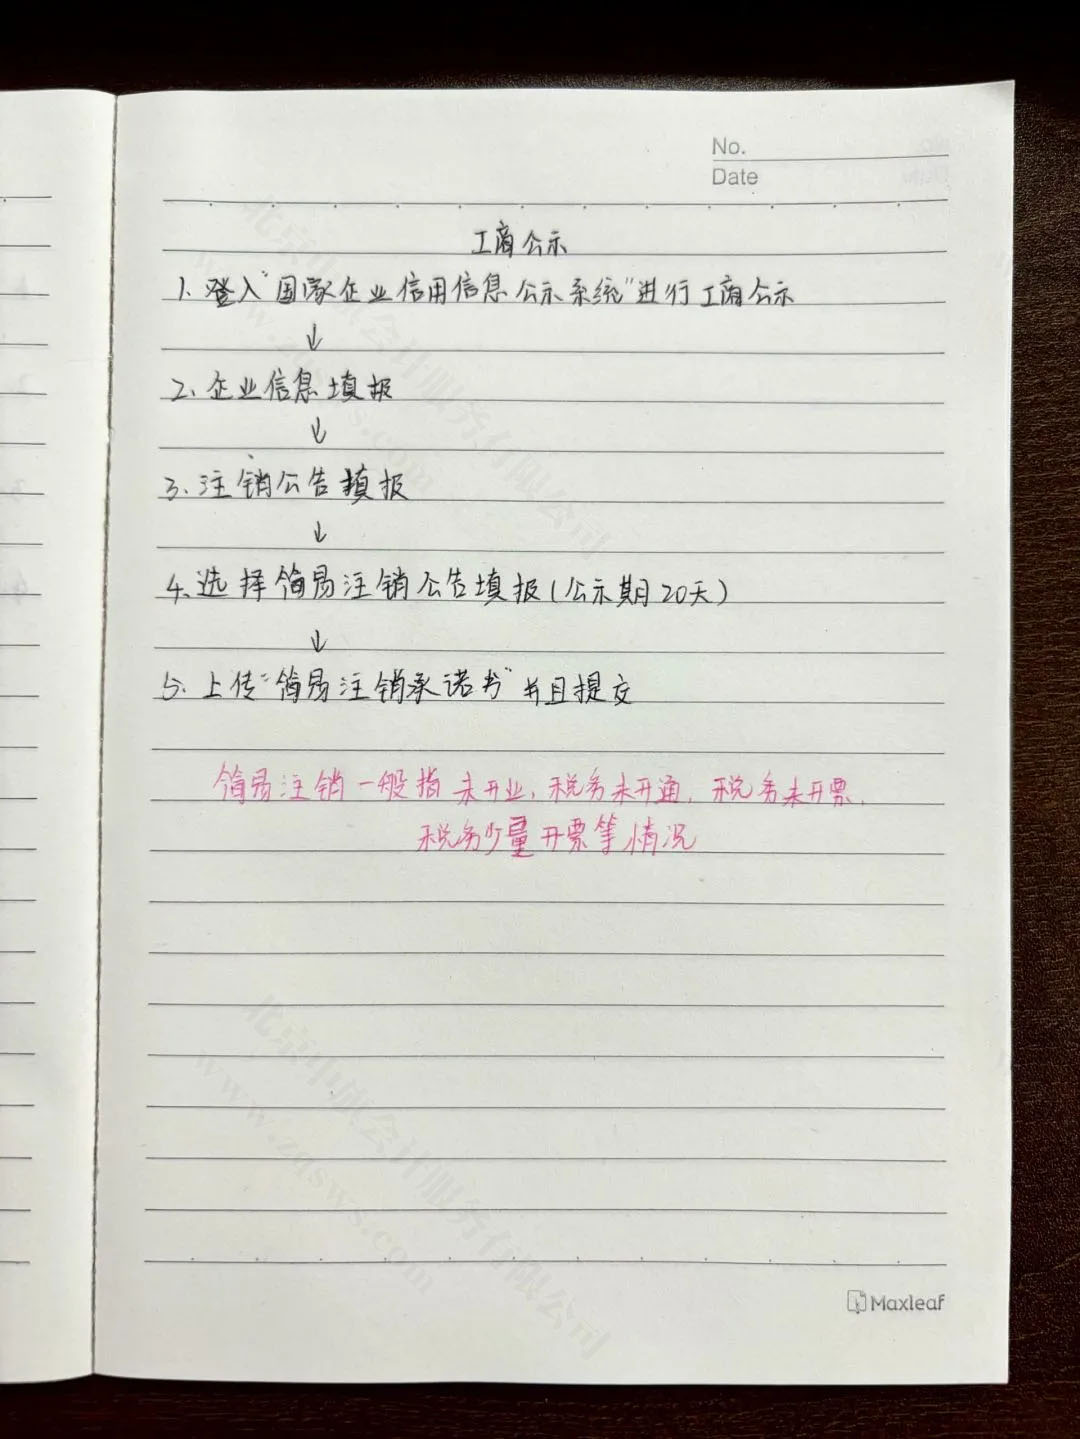 No.
Date
工商公示
1. 登入“国家企业信用信息公示系统”进行工商公示
↓
2、企业信息填报
↓
3、注销公告填报
↓
4、选择简易注销公告填报(公示期20天)
↓
5、上传“简易注销承诺书”并且提交
简易注销一般指未开业、税务未开通、税务未开票、
税务少量开票等情况
Maxleaf
北京中旗会计服务有限公司
www.zqsws.com
北京中旗会计服务有限公司
www.zqsws.com